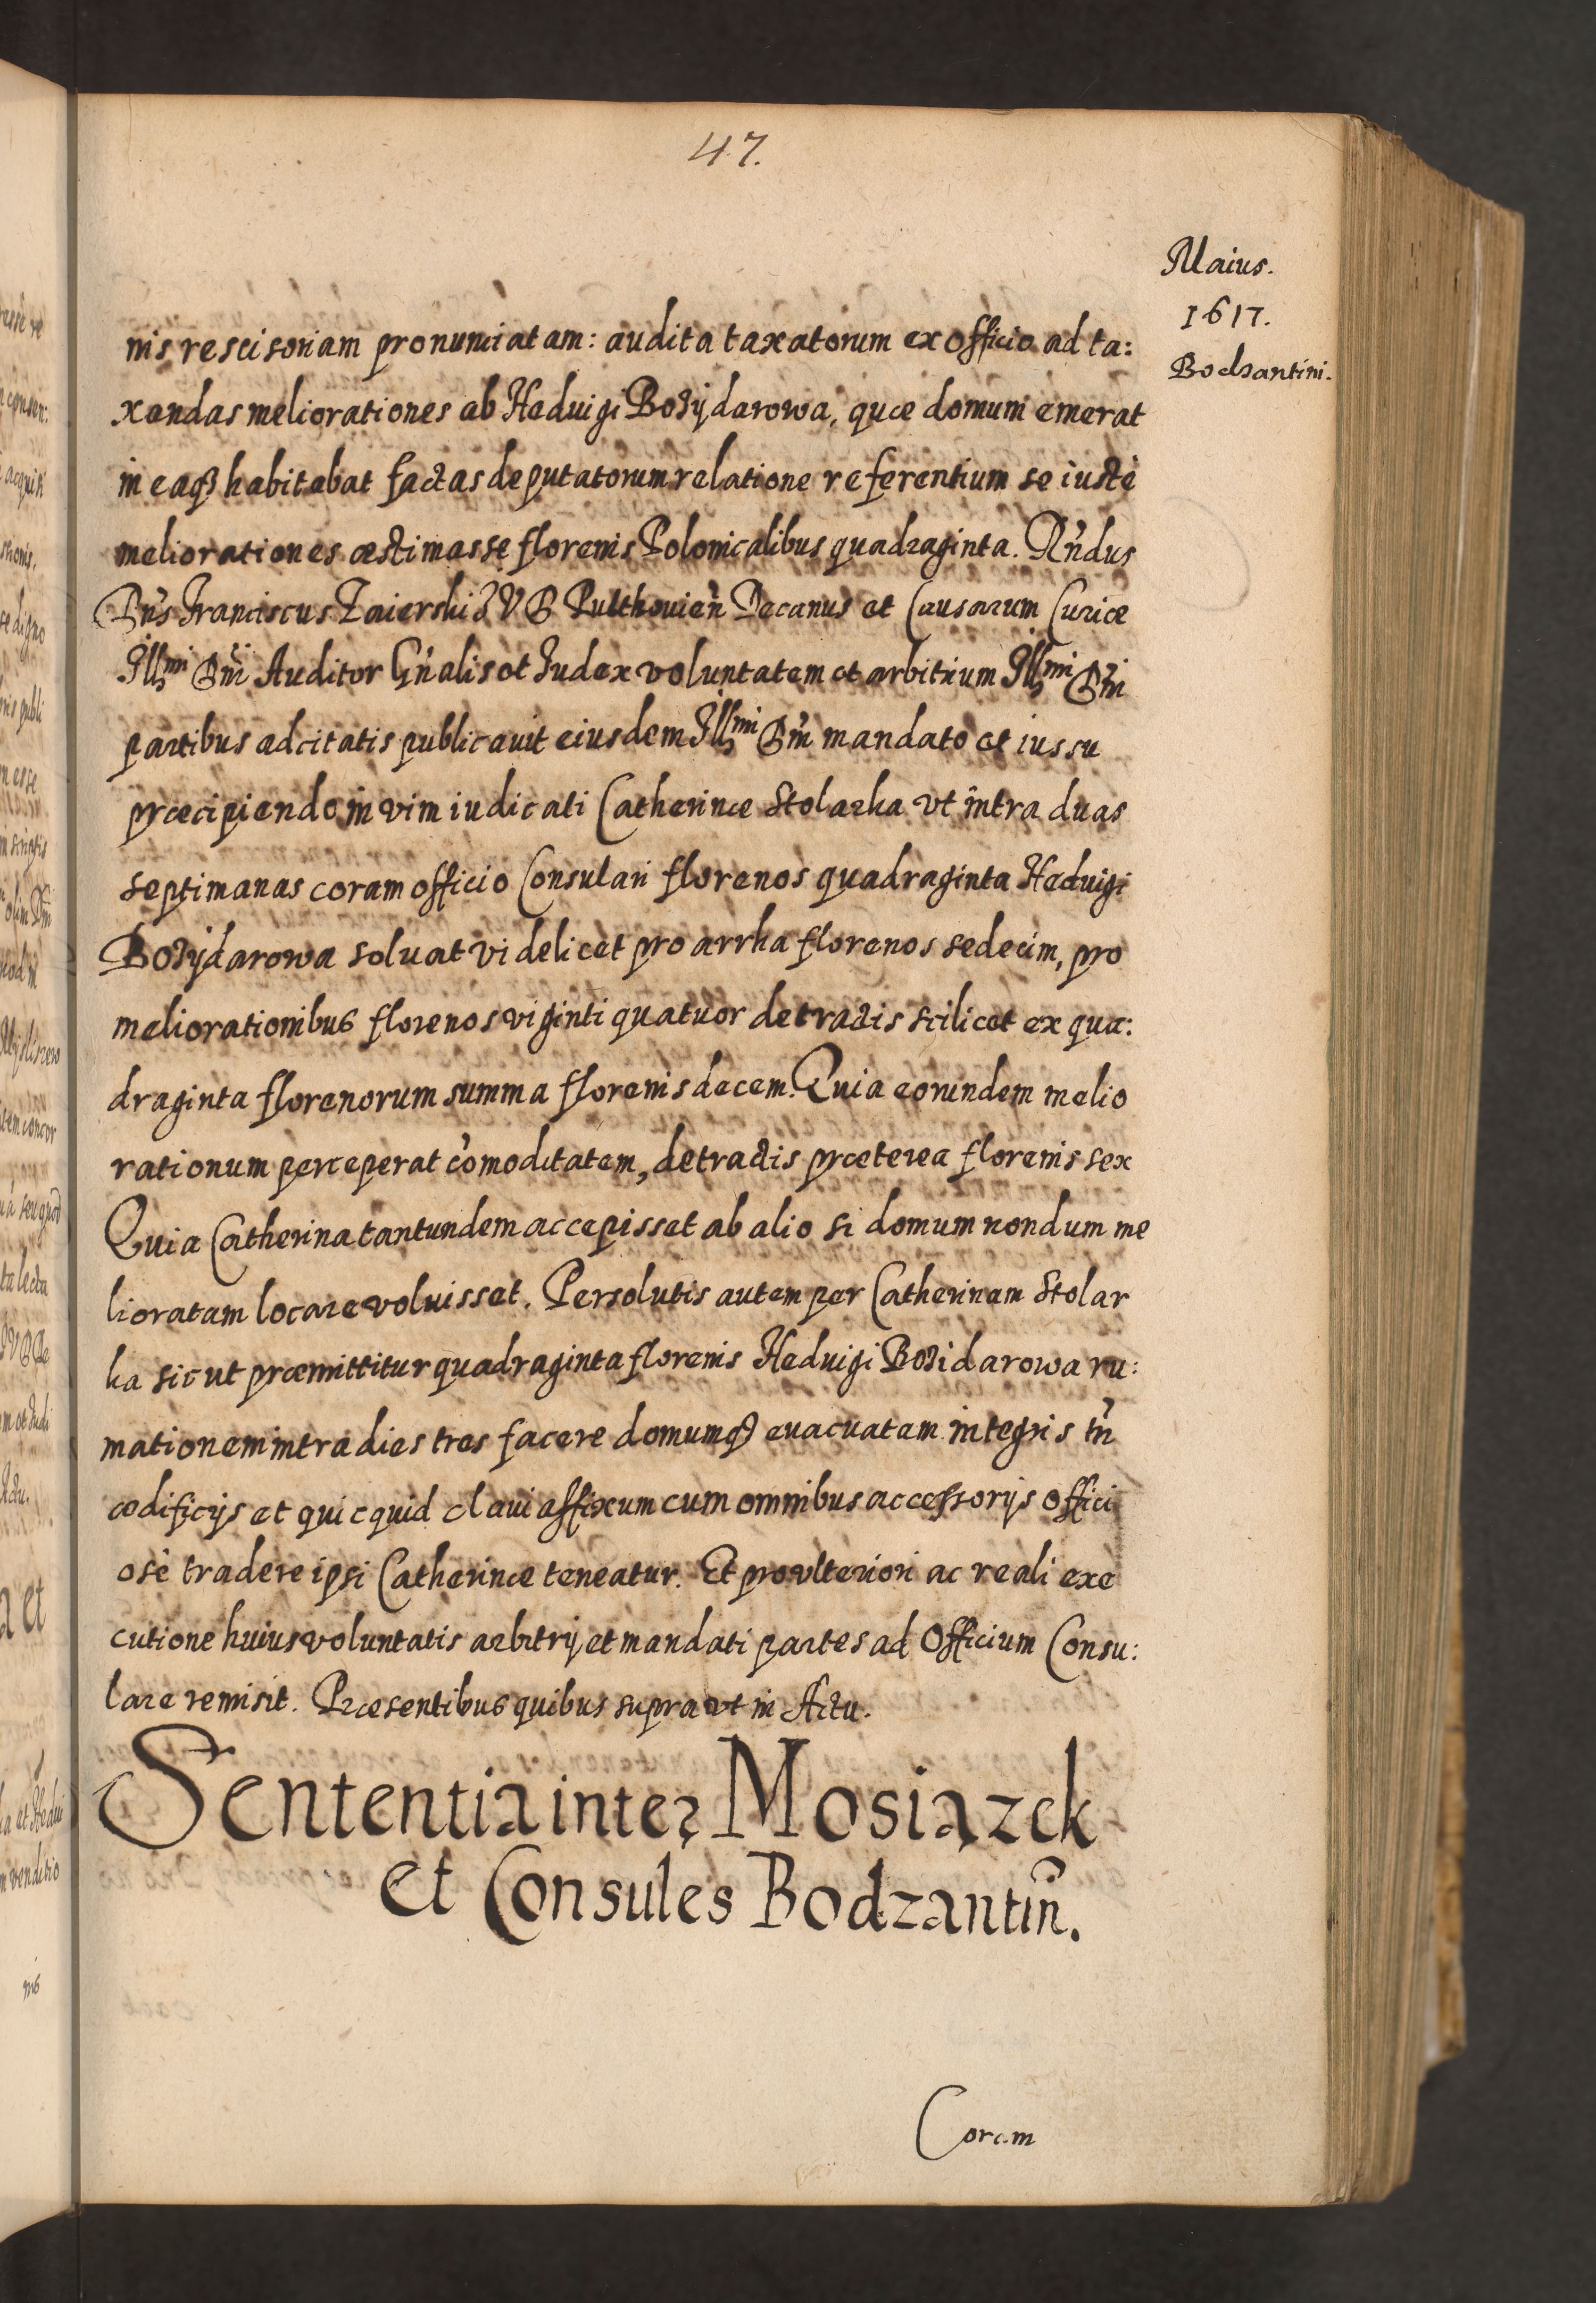 47.
Maius.
1617.
Bodzantini.
nis rescisoriam pronunciatam: audita taxatorum ex officio ad ta:
xandas meliorationes ab Heduigi Bożydarowa, quæ domum emerat
in eaqȝ habitabat factas deputatorum relatione referentium se iustè
meliorationes æstimasse florenis Polonicalibus quadraginta. Rńdus
Dńs Franciscus Zaierski I V D Pulthouień Decanus et Causarum Curiæ
Illmi Dńi Auditor Gńalis et Iudex voluntatem et arbitrium Illmi Dńi
partibus adcitatis publicauit eiusdem Illmi Dńi mandato et iussu
præcipiendo in vim iudicati Catherinæ Stolarka vt intra duas
septimanas coram officio Consulari florenos quadraginta Heduigi
Bożydarowa soluat videlicet pro arrha florenos sedecim, pro
meliorationibus florenos viginti quatuor detractis scilicet ex qua:
draginta florenorum summa florenis decem. Quia eorundem melio
rationum perceperat cōmoditatem, detractis præterea florenis sex
Quia Catherina tantundem accepisset ab alio si domum nondum me
lioratam locare voluisset. Persolutis autem per Catherinam Stolar
ka sicut præmittitur quadraginta florenis Heduigi Bożidarowa ru:
mationem intra dies tres facere domumqȝ euacuatam integris tń
ædificijs et quicquid claui affixum cum omnibus accessorijs offici
osè tradere ipsi Catherinæ teneatur. Et pro vlteriori ac reali exe
cutione huius voluntatis arbitrij et mandati partes ad Officium Consu:
lare remisit. Præsentibus quibus supra vt in Actu.
Sententia inter Mosiązek
et Consules Bodzantiń.
Coram